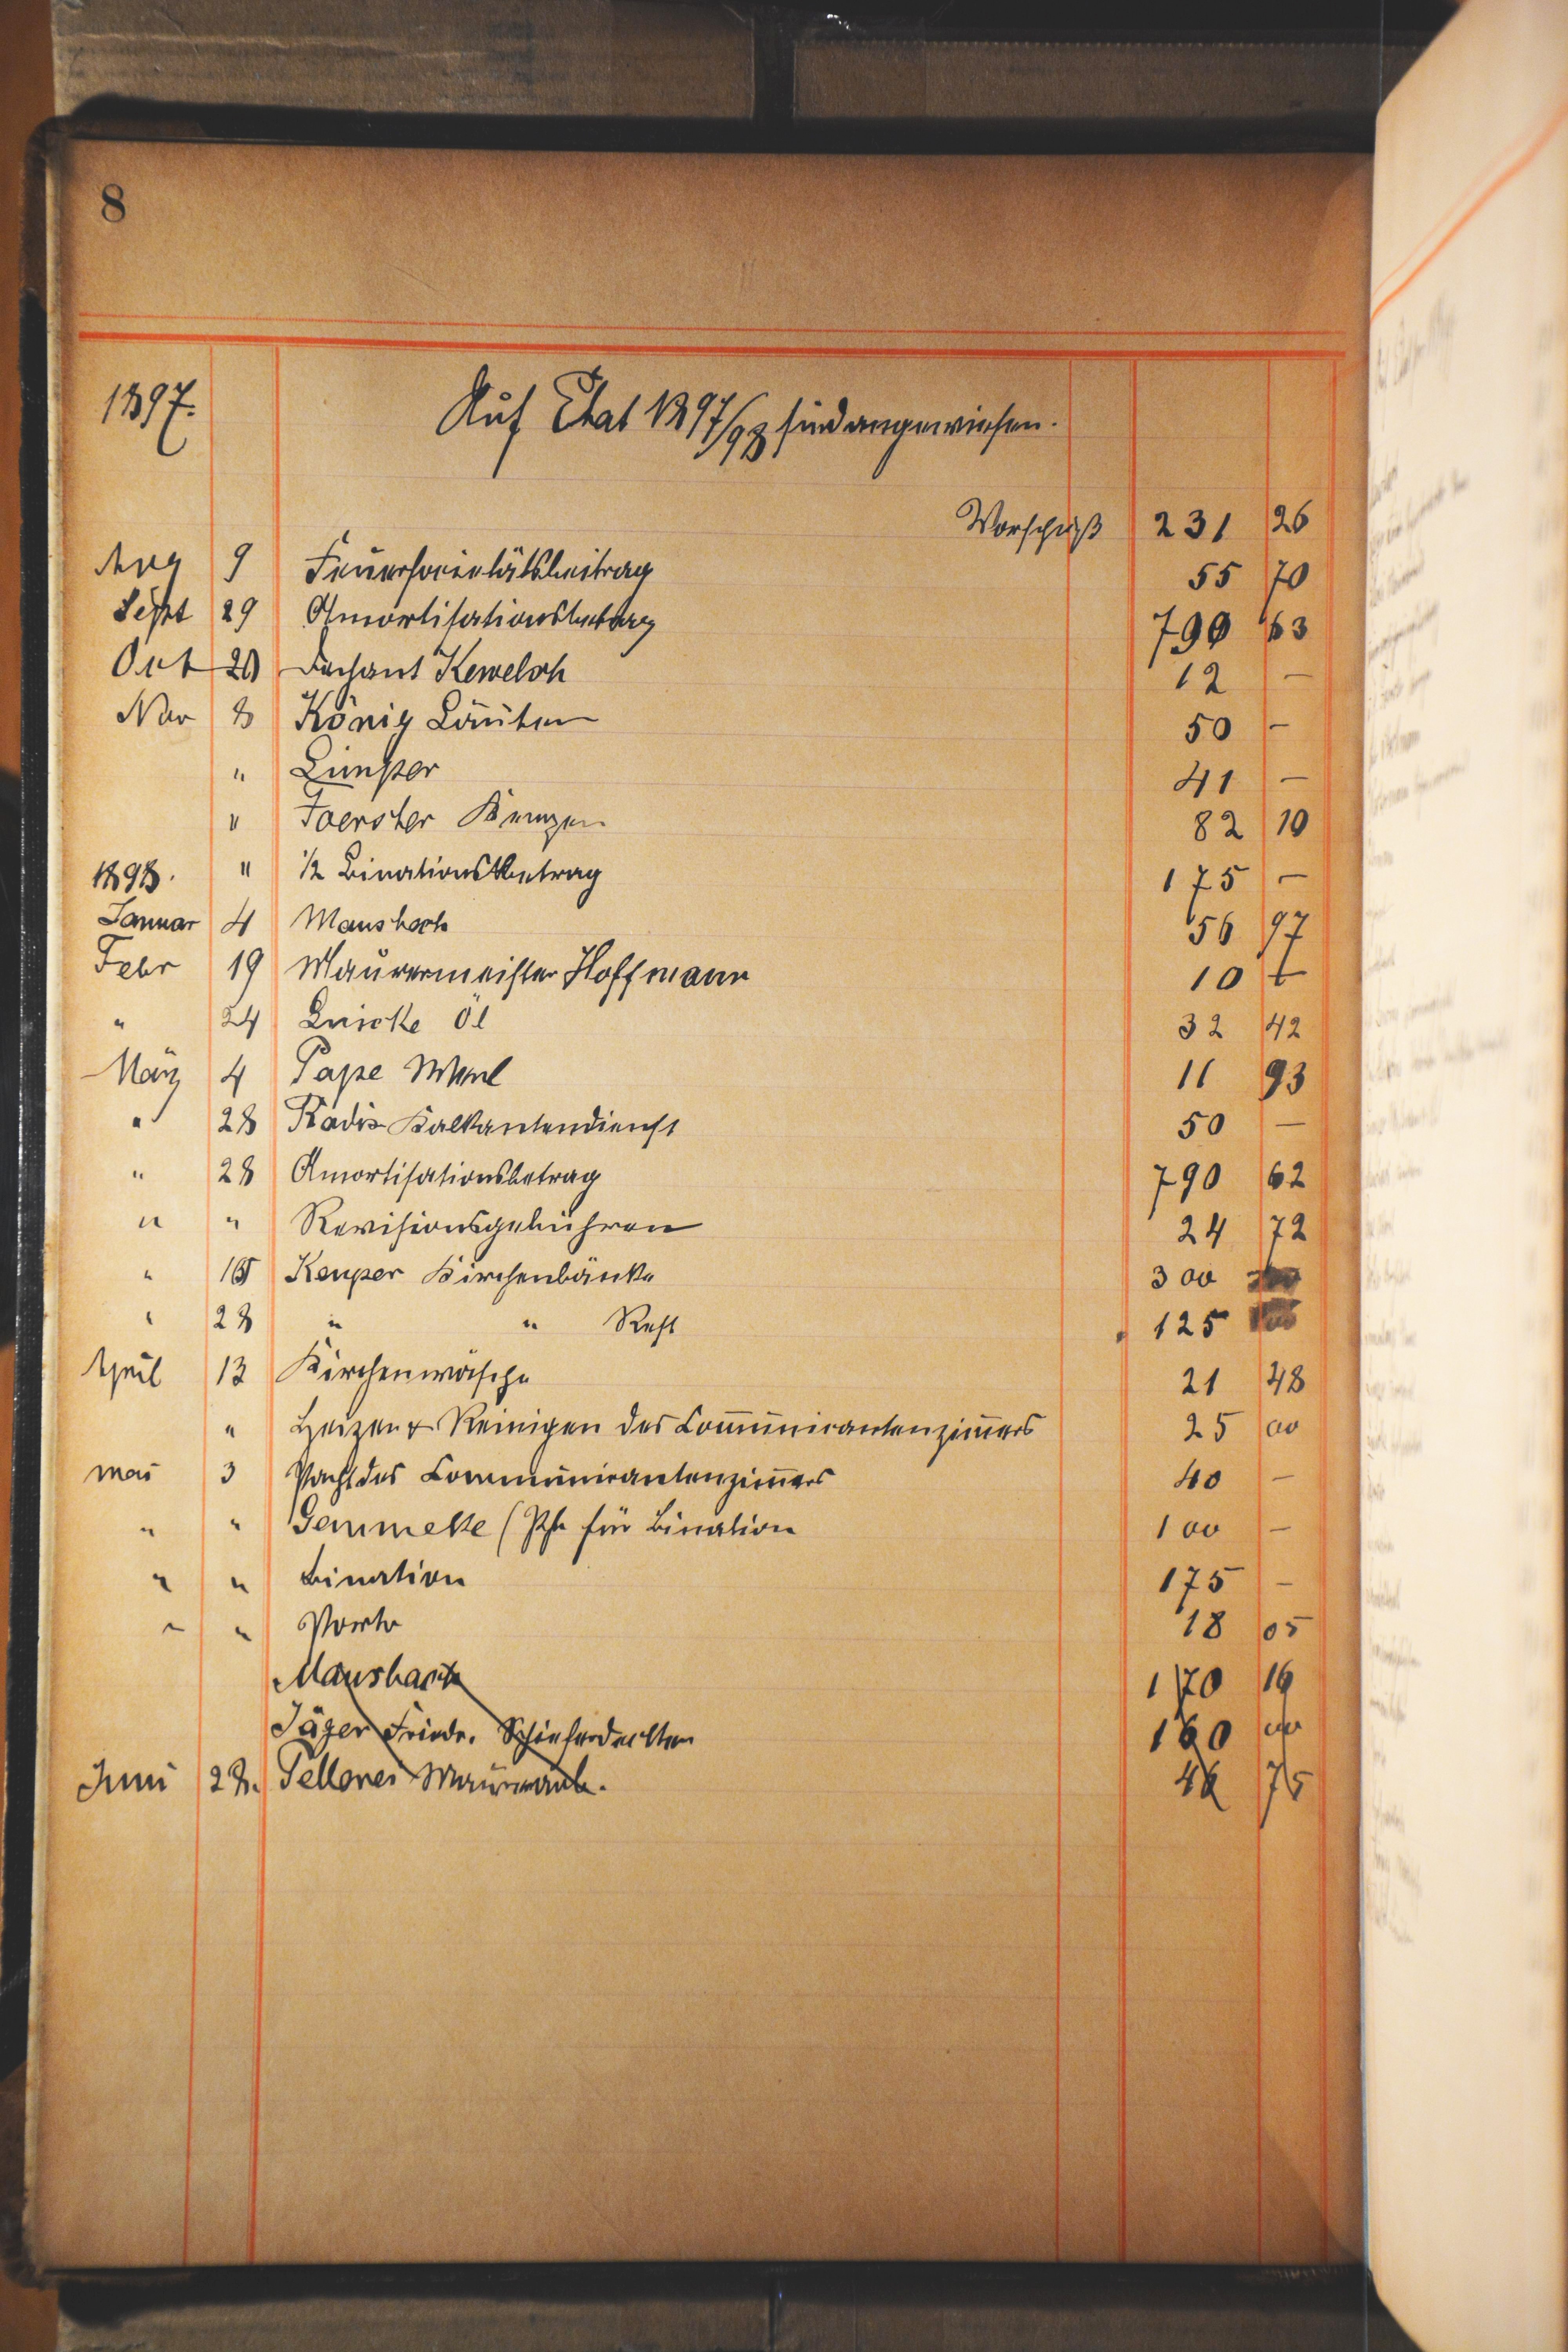 8
1897. Auf Etat 1897/98 sind angewiesen.
Vorschuß 231 26
Aug 9 Feuersocietätsbeitrag 55 70
Sept 29 Amortisationsbetrag 790 63
Oct 20 Dechant Keweloh 12 —
Nov 8 König Läuten 50 —
" Limper 41 —
" Foerster Kerzen 82 10
1898. " 1/2 Binationsbetrag 175 —
Januar 4 Mausbach 56 97
Febr 19 Maurermeister Hoffmann 10 —
" 24 Quicke Öl 32 42
März 4 Pape 11 93
" 28 Radix Kalkantendienst 50 —
" 28 Amortisationsbetrag 790 62
" " Revisionsgebühren 24 72
" Keuper Kirchenbänke 300
" 28 " " Rest 125
April 13 Kirchenwäsche 21 48
" Heizen & Reinigen des Com̅unicantenzim̅ers 25 00
Mai 3 Pacht des Communicantenzim̅ers 40 —
" " Gemmeke für Bination 100 —
" " Bination 175 —
" " Porto 18 05
Mausbach 170 16
Jäger Friedr. Schieferdecker 160 00
Juni 28. Pelloner 75